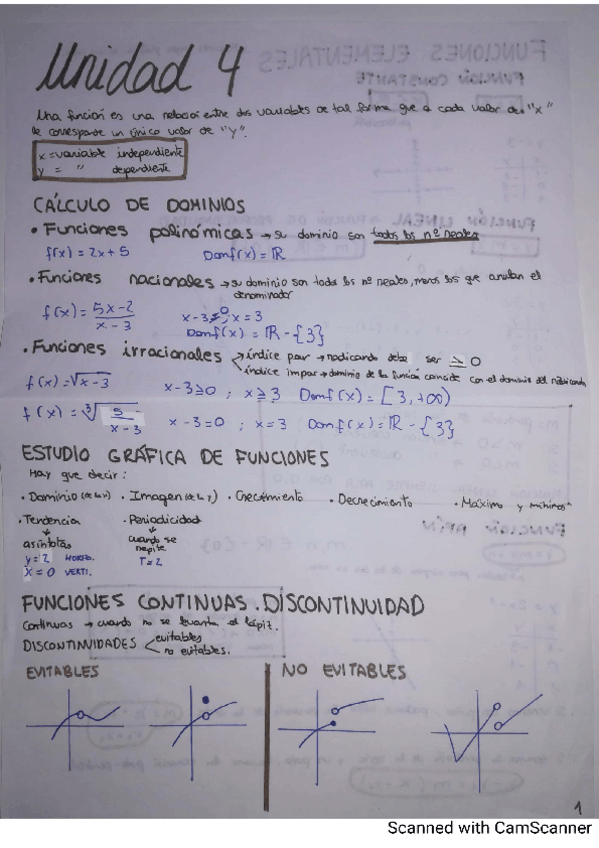 Unidad 4
Una función es una relación entre dos variables de tal forma que a cada valor de "x"
le corresponde un único valor de "y".
x = variable independiente
y = " dependiente
CÁLCULO DE DOMINIOS
• Funciones polinómicas → su dominio son todos los nº reales
f(x) = 2x + 5 Dom f(x) = ℝ
• Funciones racionales → su dominio son todos los nº reales, menos los que anulan el
denominador
f(x) = 5x-2 / x-3 x-3=0; x=3
Dom f(x) = ℝ - {3}
• Funciones irracionales → índice par → radicando debe ser ≥ 0
→ índice impar → dominio de la función coincide con el dominio del radicando
f(x) = √x-3 x-3≥0 ; x≥3 Dom f(x) = [3, +∞)
f(x) = ∛5/x-3 x-3=0 ; x=3 Dom f(x) = ℝ - {3}
ESTUDIO GRÁFICA DE FUNCIONES
Hay que decir:
• Dominio (de la x) • Imagen (de la y) • Crecimiento • Decrecimiento • Máximo y mínimos
• Tendencia • Periodicidad
asíntotas cuando se
repite
y = 2 HORIZO. T = 2
x = 0 VERTI.
FUNCIONES CONTINUAS. DISCONTINUIDAD
Continuas → cuando no se levanta el lápiz.
DISCONTINUIDADES evitables
no evitables.
EVITABLES NO EVITABLES
1
Scanned with CamScanner